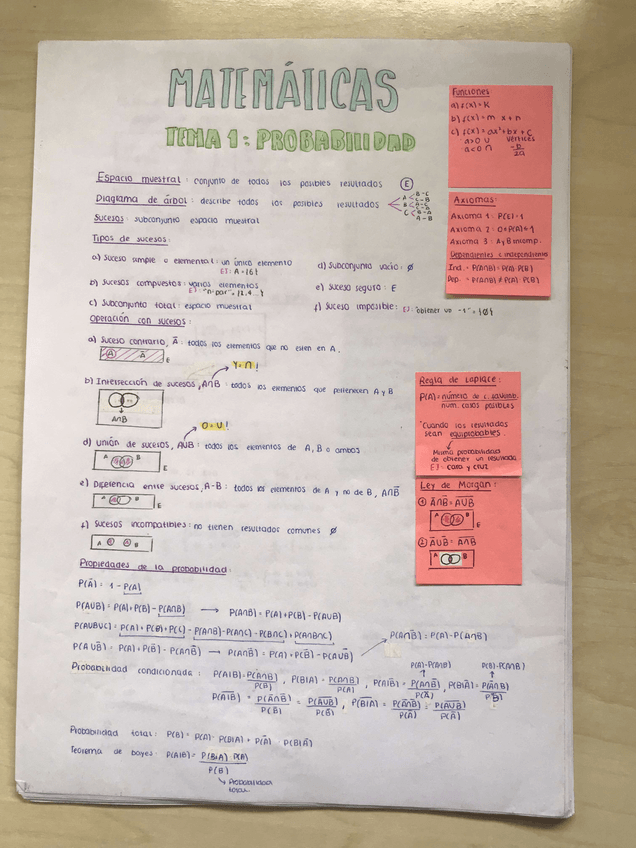 MATEMÁTICAS
TEMA 1: PROBABILIDAD
Espacio muestral: conjunto de todos los posibles resultados (E)
Diagrama de árbol: describe todos los posibles resultados
A B-C
C-B
B A-C
C-A
C B-A
A-B
Sucesos: subconjunto espacio muestral
Tipos de sucesos:
a) Suceso simple o elemental: un único elemento
EJ: A = {6}
b) Sucesos compuestos: varios elementos
EJ: "n·par" = {2,4...}
c) Subconjunto total: espacio muestral
d) Subconjunto vacío: ∅
e) Suceso seguro: E
f) Suceso imposible: EJ: "obtener un -1" = {∅}
Operación con sucesos:
a) Suceso contrario, A̅: todos los elementos que no esten en A.
A A̅ E
Y = ∩!
b) Intersección de sucesos, A∩B: todos los elementos que pertenecen A y B
A∩B
O = U!
d) Unión de sucesos, AUB: todos los elementos de A, B o ambos
A B E
e) Diferencia entre sucesos, A-B: todos los elementos de A y no de B, A∩B̅
A B E
f) Sucesos incompatibles: no tienen resultados comunes ∅
A B
Propiedades de la probabilidad:
P(A̅) = 1 - P(A)
P(AUB) = P(A)+P(B)-P(A∩B) → P(A∩B) = P(A)+P(B)-P(AUB)
P(AUBUC) = P(A)+P(B)+P(C)-P(A∩B)-P(A∩C)-P(B∩C)+P(A∩B∩C)
P(AUB̅) = P(A)+P(B̅)-P(A∩B̅) → P(A∩B̅) = P(A)+P(B̅)-P(AUB̅)
P(A∩B̅) = P(A)-P(A∩B)
P(A)-P(A∩B) P(B)-P(A∩B)
Probabilidad condicionada: P(A|B) = P(A∩B)/P(B), P(B|A) = P(A∩B)/P(A), P(A|B̅) = P(A∩B̅)/P(B̅), P(B|A̅) = P(A̅∩B)/P(A̅)
P(A̅|B̅) = P(A̅∩B̅)/P(B̅) = P(A̅U̅B̅)/P(B̅), P(B̅|A̅) = P(A̅∩B̅)/P(A̅) = P(A̅U̅B̅)/P(A̅)
Probabilidad total: P(B) = P(A)· P(B|A) + P(A̅) · P(B|A̅)
Teorema de bayes: P(A|B) = P(B|A)·P(A)/P(B)
Probabilidad
total
Funciones:
a) f(x) = K
b) f(x) = m x + n
c) f(x) = ax²+bx+c
a>0 U
a<0 ∩
Vértices
-b/2a
Axiomas:
Axioma 1: P(E)=1
Axioma 2: 0≤P(A)≤1
Axioma 3: A y B incomp.
Dependientes e independientes
Ind. = P(A∩B) = P(A)·P(B)
Dep. = P(A∩B) ≠ P(A)·P(B)
Regla de Laplace:
P(A) = número de c. favorab.
num. casos posibles
*Cuando los resultados
sean equiprobables.
Misma probabilidad
de obtener un resultado
EJ: cara y cruz
Ley de Morgan:
① A̅∩B̅ = A̅U̅B̅
A B E
② A̅UB̅ = A̅∩̅B̅
A B